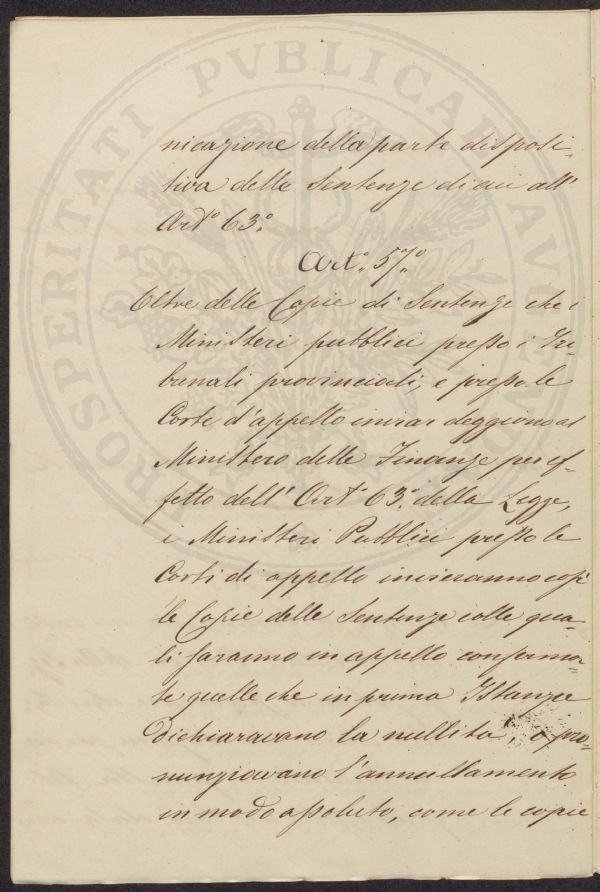 PROSPERITATI PVBLICAE AVGENDAE
nicazione della parte disposi-
tiva delle Sentenze di cui all'
Art.º 63.º
Art.º 57.º
Oltre delle Copie di Sentenze che i
Ministeri pubblici presso i Tri-
bunali provinciali, e presso le
Corte d'appello inviar deggiono al
Ministero delle Finanze per ef-
fetto dell' Art.º 63.º della Legge,
i Ministeri Pubblici presso le
Corti di appello invieranno così
le Copie delle Sentenze colle qua-
li saranno in appello conferma-
te quelle che in prima Istanza
dichiaravano la nullità, o pro-
nunziavano l'annullamento
in modo assoluto, come le copie